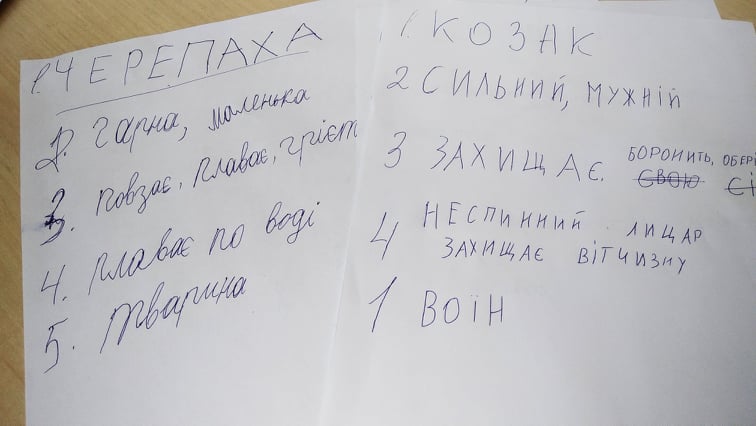 1. ЧЕРЕПАХА
2. гарна, маленька
3. повзає, плаває, грієт
4. плаває по воді
5. тварина
1. КОЗАК
2 СИЛЬНИЙ, МУЖНІЙ
3 ЗАХИЩАЄ. БОРОНИТЬ, ОБЕРІ
СВОЮ СІ
4 НЕСПИННИЙ ЛИЦАР
ЗАХИЩАЄ ВІТЧИЗНУ
1 ВОЇН